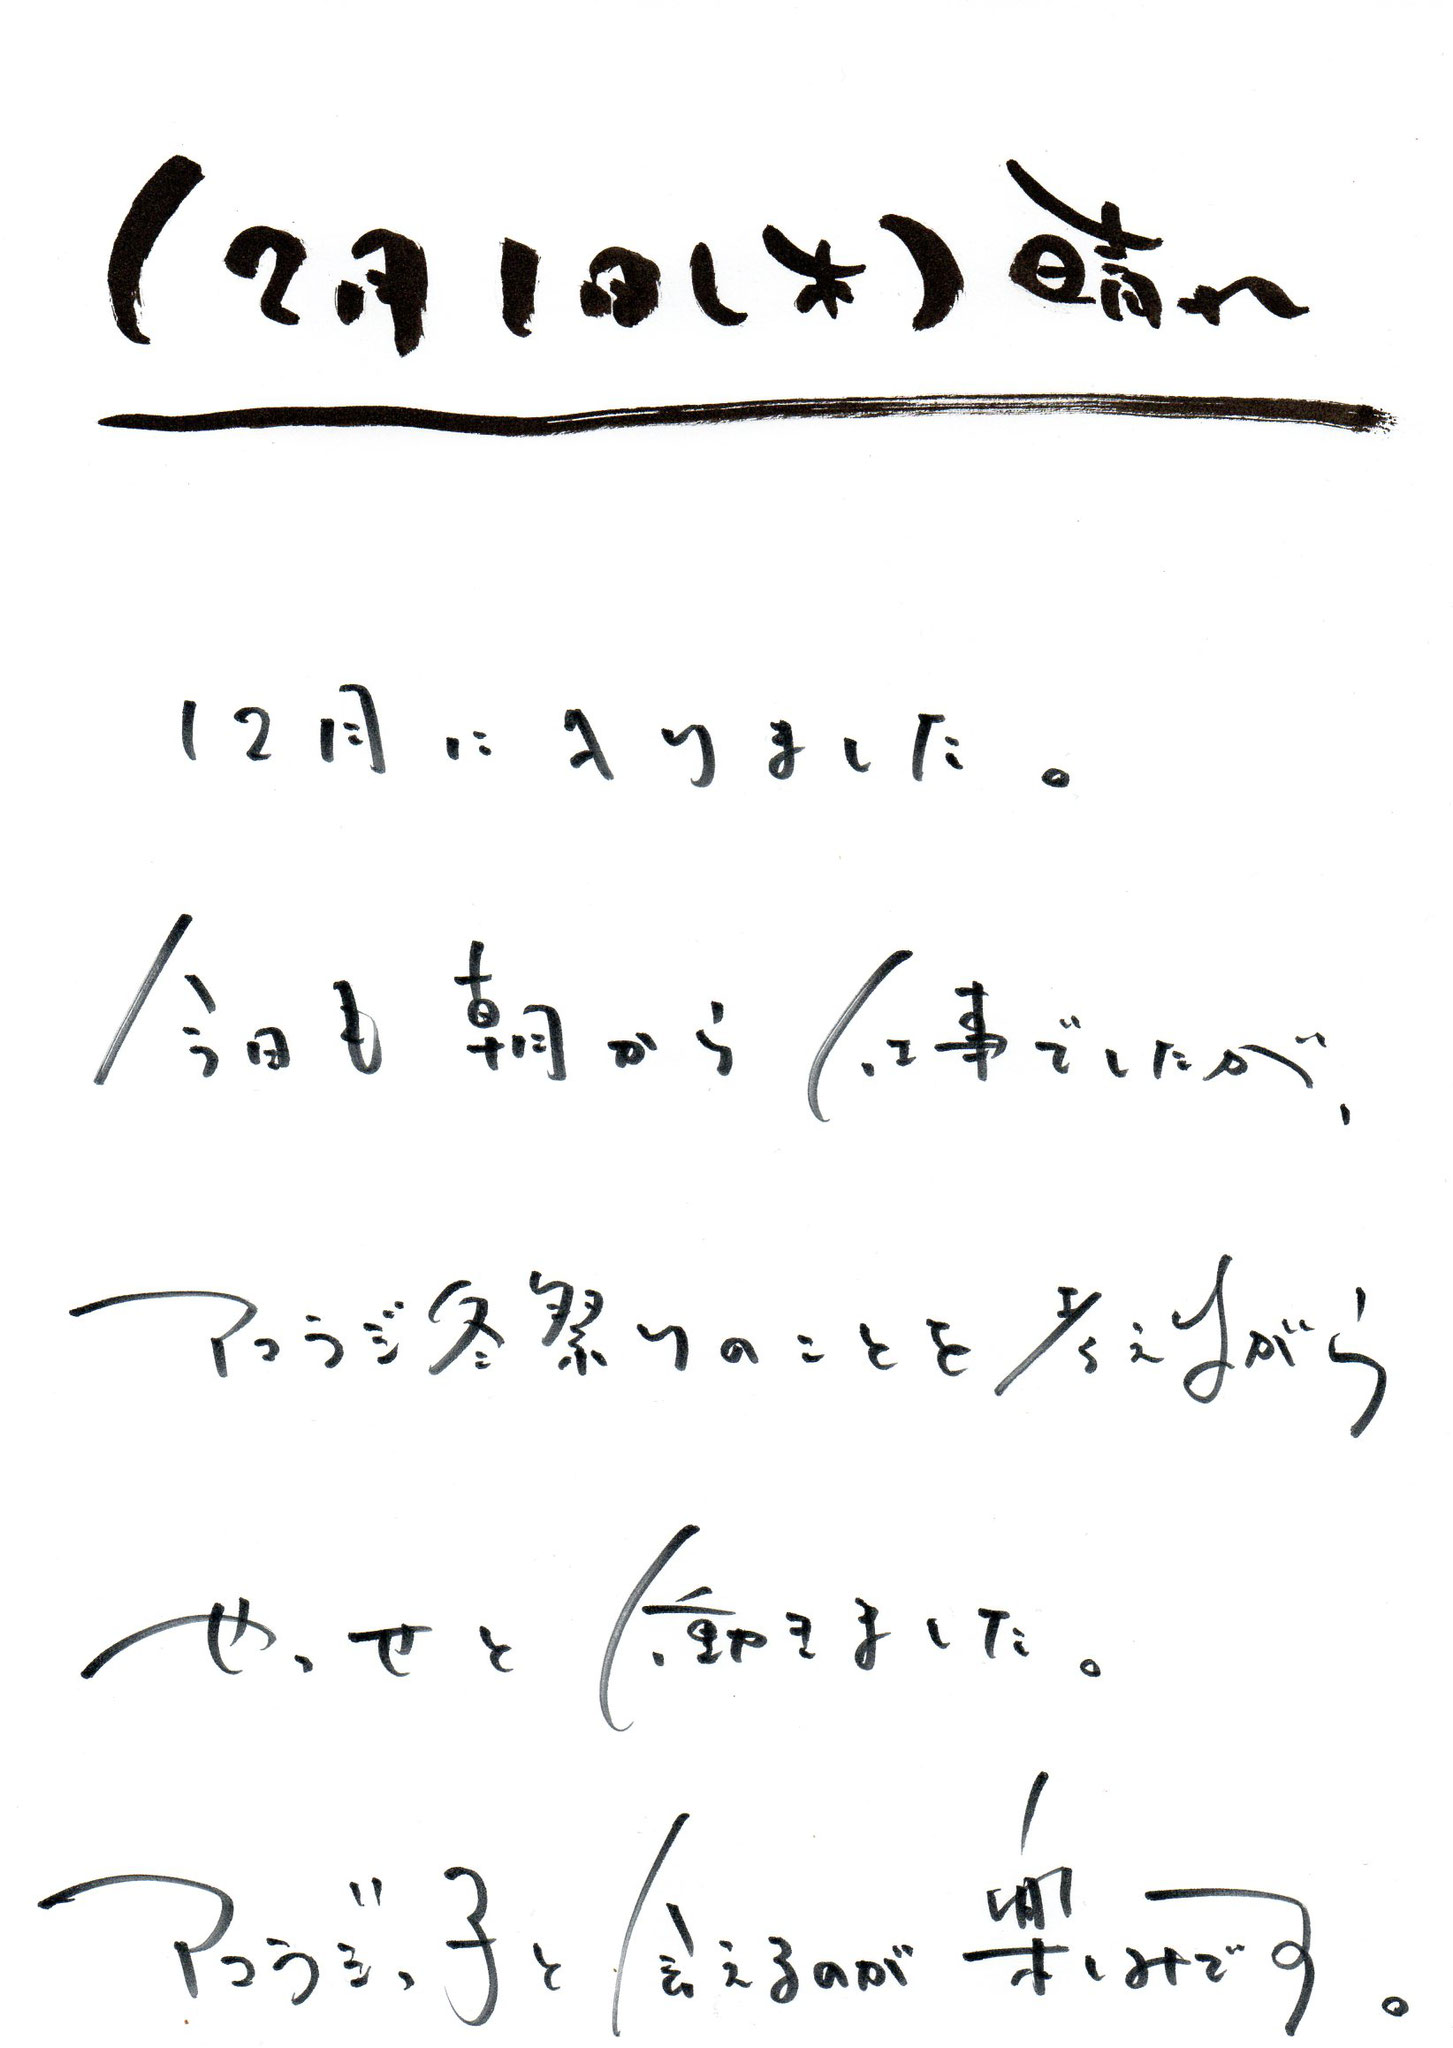 12月1日(木)晴れ
12月に入りました。
今日も朝から仕事でしたが、
アコラジ冬祭りのことを考えながら
やっせと働きました。
アコラジっ子と会えるのが楽しみです。